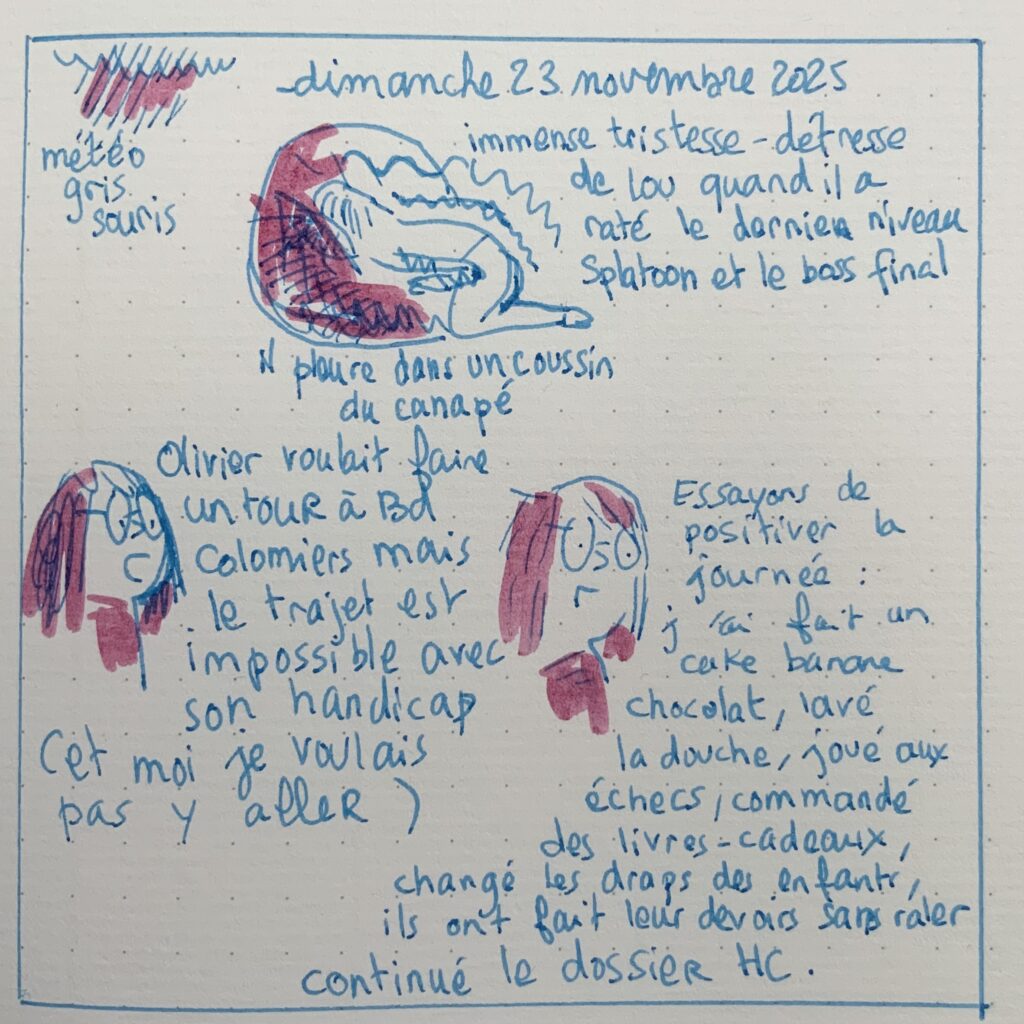 dimanche 23 novembre 2025
météo
gris
souris
immense tristesse-détresse
de Lou quand il a
raté le dernier niveau
Splatoon et le boss final
Il pleure dans un coussin
du canapé
Olivier voulait faire
un tour à Bd
Colomiers mais
le trajet est
impossible avec
son handicap
(et moi je voulais
pas y aller)
Essayons de
positiver la
journée :
j'ai fait un
cake banane
chocolat, lavé
la douche, joué aux
échecs, commandé
des livres-cadeaux,
changé les draps des enfants,
ils ont fait leur devoirs sans râler
continué le dossier HC.